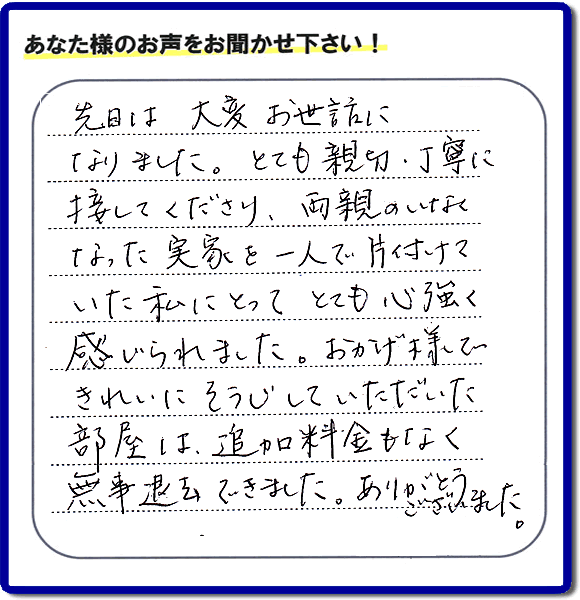 あなた様のお声をお聞かせ下さい！
先日は 大変 お世話に
なりました。とても親切・丁寧に
接してくださり、両親のいなく
なった実家を一人で片付けて
いた私にとって とても心強く
感じられました。おかげ様で
きれいにそうじしていただいた
部屋は、追加料金もなく
無事退去できました。ありがとう
ございました。